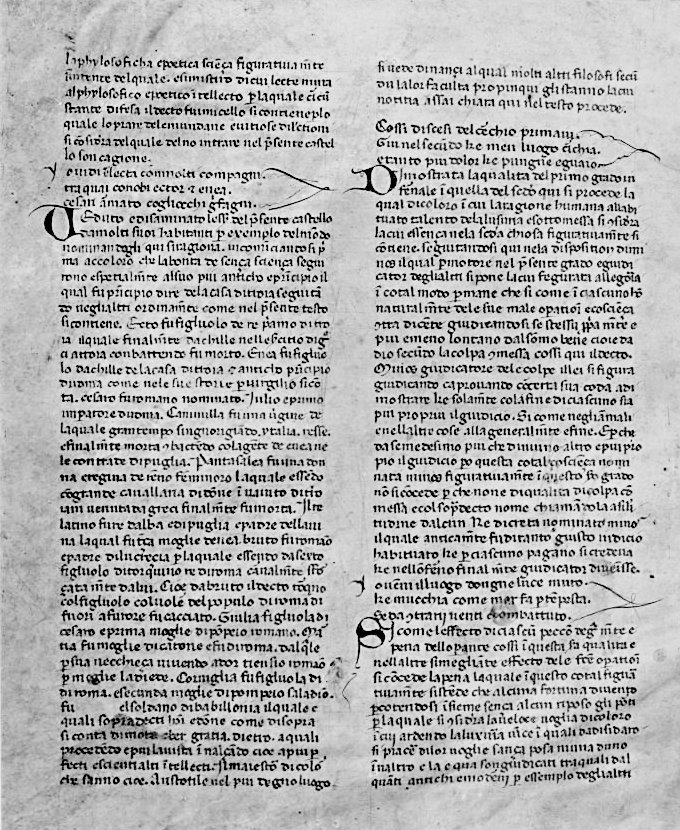 la phylosoficha e poetica sciença figurativam̃te
s'intende del quale. e simistro di cui lecte nivra
al phylosofico e poetico intellecto p la quale
stante difesa il decto fiumicello si contiene p lo
quale lo prare del e mundane e vitiose dilectioni
si del quale del no intrare nel p̃sente castel
lo son cagione.
o vidi electa con molti compagni.
tra quai conobi ector & enea.
cesar armato cogli occhi g̃fagni.
Veduto e disaminato l'ess̃. del p̃sente castello
da molti suoi habitanti p exemplo del modo
nominandegli qui si ragiona. incominciando si p̃
ma a coloro che la bonta de sença sciença segui
tono e spetialm̃te al suo piu anticho e principio il
qual fu principio dire de la casa di troia seguita
do negli altri ordinam̃te come nel p̃sente testo
si contiene. Ecto fu figluolo de re p̃amo di tro
ia il quale finalm̃te da chille nel exercitio di
ci a troia conbattendo fu morto. Enea fu figluo
lo dachille de la casa di troia & anticho p̃cipio
di roma come nele sue storie p virgilio si co
ta. cesaro fu romano nominato. Julio e primo
imperadore di roma. Cammilla fu una v̾gine de
la quale gran tempo singnoregiando. ytalia. resse.
e finalm̃te morta conbactedo colagente de enea ne
le contrate di puglia. Pantasalea fu una don
na e regina de reno femminoro la quale essedo
cograde cavallaria di done i aiuto di tro
iani venuta da greci finalm̃te fu morta. Il re
latino fu re dalba e di puglia e padre dellavi
na la qual fu moglie denea. bruto fu romao
e padre di lucrecia p la quale essendo da sexto
figluolo di torquino re di roma carnalm̃te sfo
çata m̃te dalui. Cioe da bruto il decto torq̃no
col figluolo col volē del popolo di roma di
fuori a furore fu cacciato. Giulia figluola di
cesaro e prima moglie di po̅peio romano. Ma
tia fu moglie di catone e fu di roma. dal q̃le
p sua necchieça vivendo ator tiensio romao
p moglie la diede. Corniglia fu figluola di
di roma. e secunda moglie di pompeio saladio.
fu el soldano di babillonia il quale e
quali sopradecti hoi e done come di sopra
si conta di morte gratia. dietro. a quali
procededo e piu lavisti i nalcado cioe a piu p
fecti e sciential i tellecti. Il maiesto di colo
che sanno cioe. Aristotile nel piu degno luogo
si vede dinançi al qual molti altri filosofi secū
du la lor faculta propinqui gli stanno la cui
notitia assai chiara qui nel testo procede.
Cossi discesi del cerchio primaiu.
Giu nel secūdo ke men luogo cīchia.
e tanto piu dolor ke pungne e guaio.
Dimostrata la qualita del primo grado in
fernale i quella del secdo qui si procede la
qual di coloro i cui la ragione humana all abi
tuato talento de la lusuria e sottomessa si
la cui essença nela seda chiosa figurativam̃te si
contiene. seguitandosi qui nela disposition di mi
nos il qual p̃motore nel p̃sente grado e giudi
cator degli alti si pone la cui figurata allegoria
i cotal modo p̃mane che si come i ciascuno ho
naturalm̃te de le sue male opatiōi e cosciença
gtta dicente giudicandosi se stessu p̃am̃te e
piu e meno lontano dal somo bene cioe da
dio secūdo la colpa gmessa cossi qui il decto.
Minos giudicatore dele colpe illei si figura
giudicando e aprovando coçerta sua coda. a di
mostrare ke solam̃te cola fine di ciascuno sta
piu proprio il giudicio. Si come negli animali
e nel laltre cose alla generalm̃te e fine. Epche
da se medesimo piu che di nuno altro e piu prio
pio il giudicio po questa cotal cosciença nomi
nata minos figurativam̃te i questo s̾o grado
nosi cocede p che none di qualita di colpa co
messa ecol sopradecto nome chiamadola asili
tudine dalcun Re di creta nominato minos
il quale anticam̃te fu di tanto giusto iudicio
habituato ke p ciascuno pagano si credeva
ke nello inferno final m̃te giudicatore diveisse.
o venni il luogo dongne luce muto.
ke mucchia come mar fa p tempesta.
se da gtrarii venti e combattuto.
Si come leffecto di ciascū pecco e
pena dello pante cossi i questa fa qualita e
nellaltre simegliante effecto dele fre opatiōi
si cocede la pena la quale i questo cotal figura
tivam̃te si stende che alcuna fortuna di vento
pcotendosi i sieme sença alcun riposo gli porti
p la quale si gsidra la veloce voglia di coloro
i cui ardendo la luxuria
si piacer di lor voglie sança posa nuna duno
i naltro e la e qua son giudicati tra quali dal
quāti antichi e moderni p essemplo degli altri